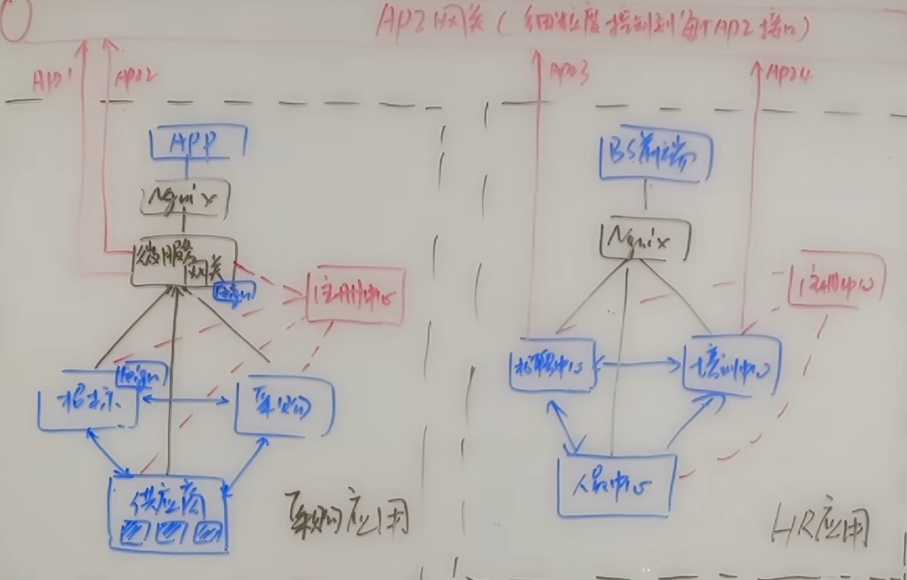 API网关（细粒度控制到每个API接口）
API1
API2
API3
API4
APP
Ngnix
微服务
网关
Feign
注册中心
Feign
招标
采购
供应商
采购应用
BS前端
Ngnix
注册中心
招聘中心
培训中心
人员中心
HR应用